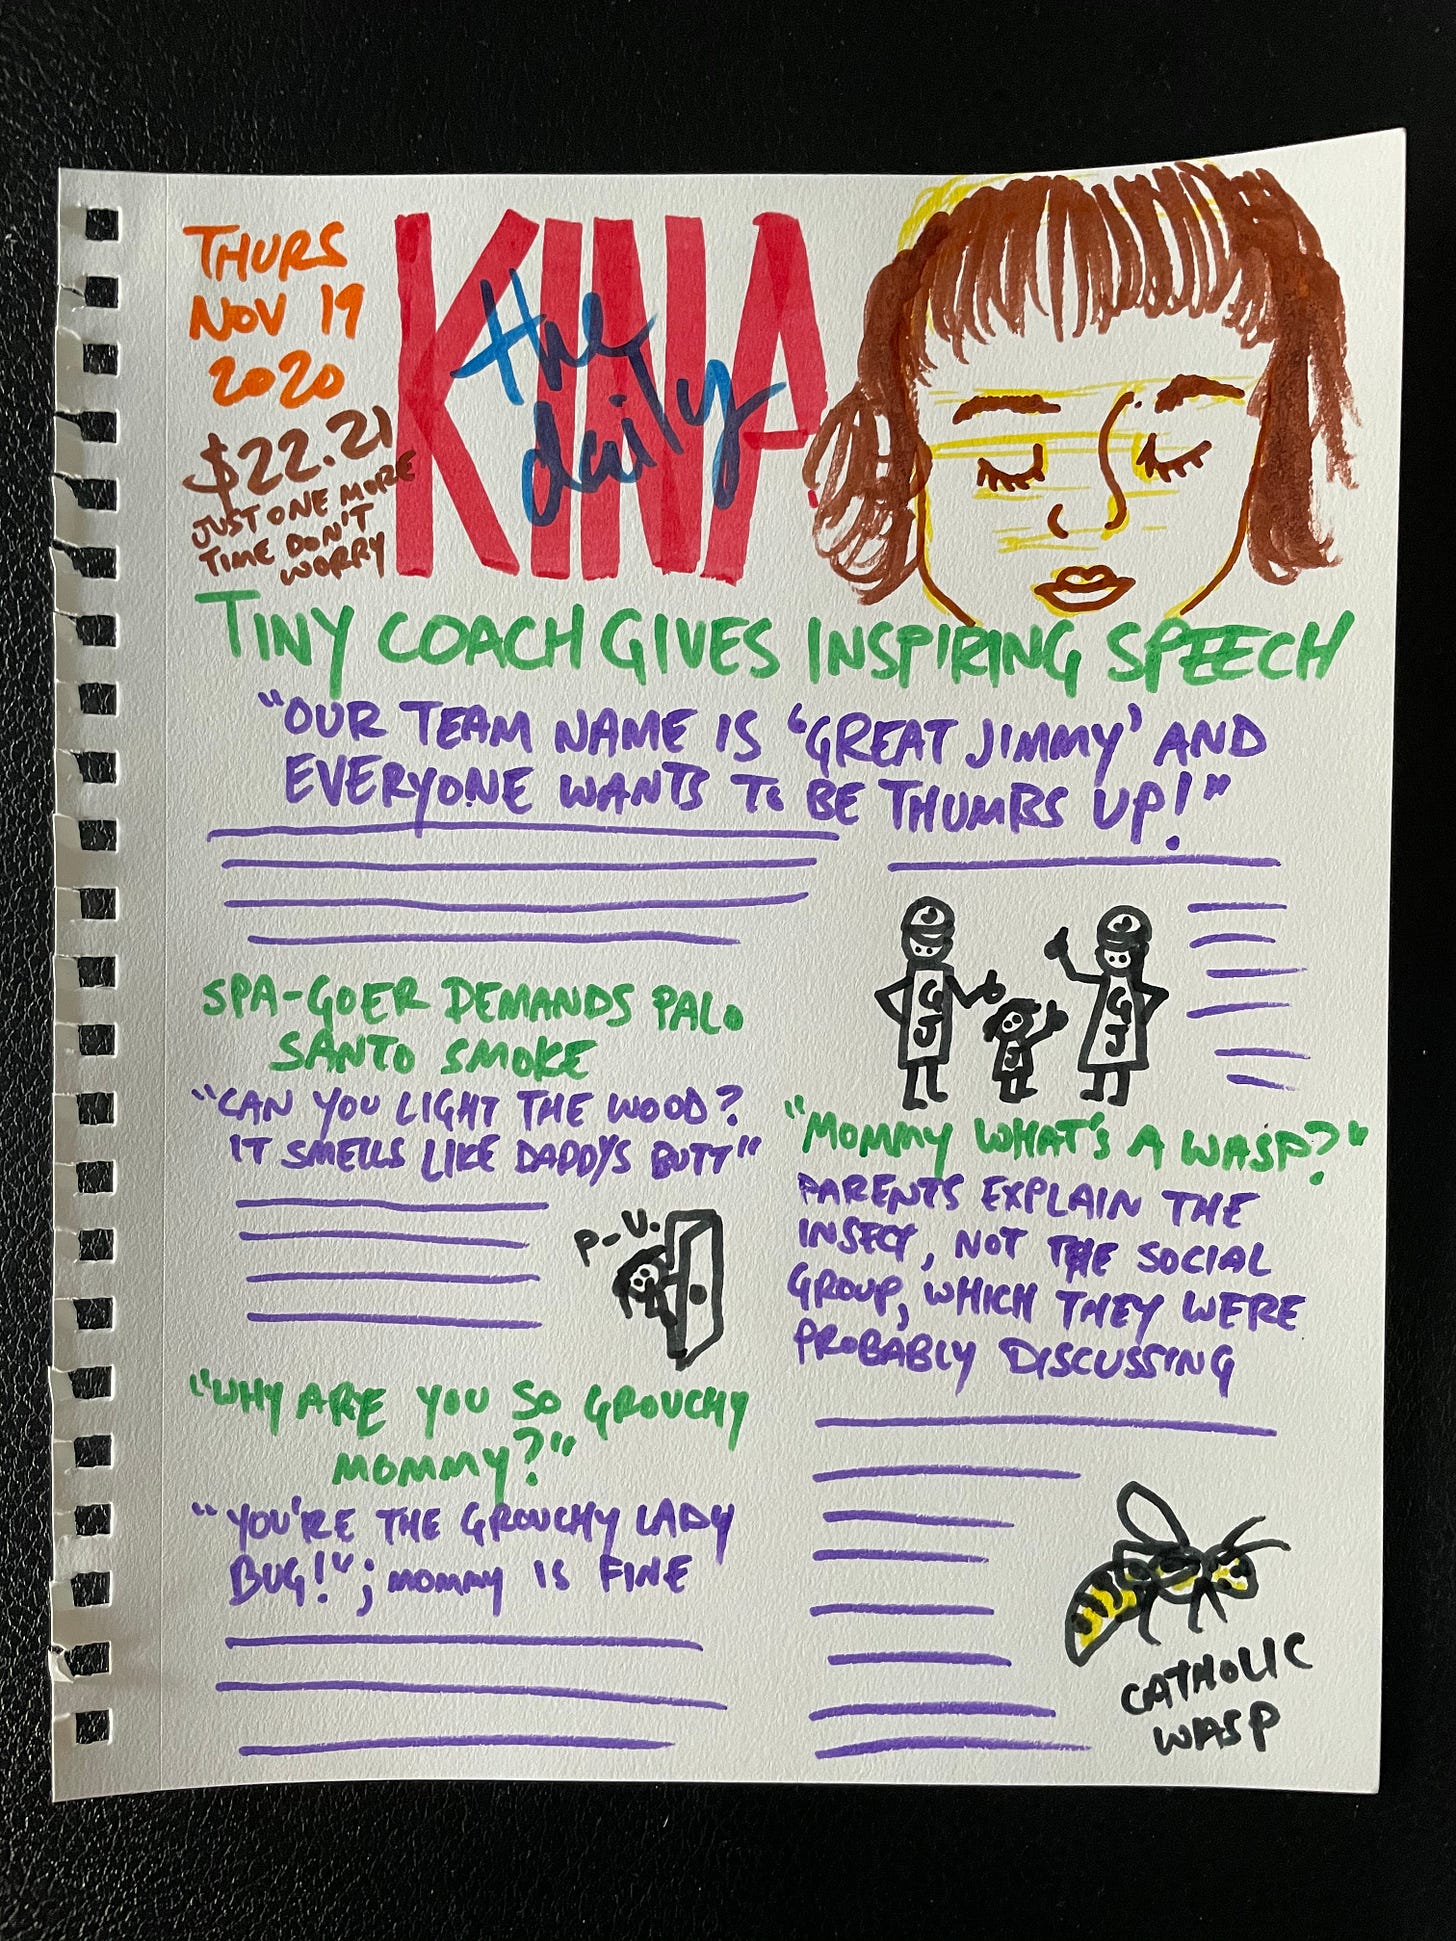 THURS
NOV 19
2020
$22.21
JUST ONE MORE
TIME DON'T
WORRY
KINA
the
daily
TINY COACH GIVES INSPIRING SPEECH
"OUR TEAM NAME IS 'GREAT JIMMY' AND
EVERYONE WANTS TO BE THUMBS UP!"
J
J
GJ
GJ
J
SPA-GOER DEMANDS PALO
SANTO SMOKE
"CAN YOU LIGHT THE WOOD?
IT SMELLS LIKE DADDYS BUTT"
P-U.
"WHY ARE YOU SO GROUCHY
MOMMY?"
"YOU'RE THE GROUCHY LADY
BUG!"; MOMMY IS FINE
"MOMMY WHAT'S A WASP?"
PARENTS EXPLAIN THE
INSECT, NOT THE SOCIAL
GROUP, WHICH THEY WERE
PROBABLY DISCUSSING
CATHOLIC
WASP